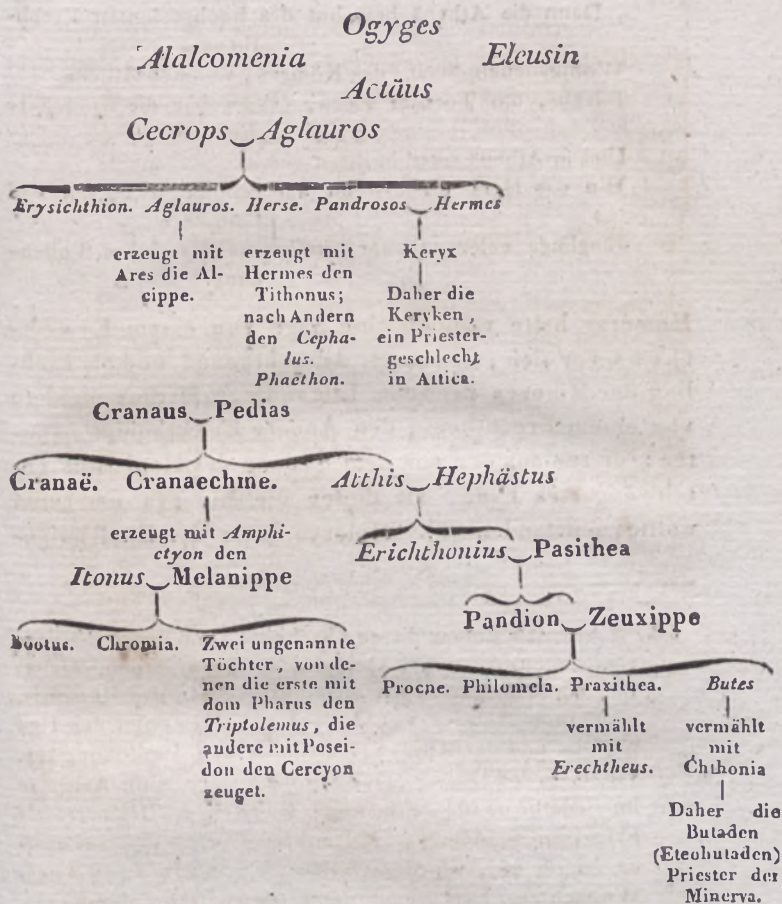 Ogyges
Alalcomenia Eleusin
Actäus
Cecrops Aglauros
Erysichthion. Aglauros. Herse. Pandrosos Hermes
erzeugt mit
Ares die Al-
cippe.
erzeugt mit
Hermes den
Tithonus;
nach Andern
den Cepha-
lus.
Phaethon.
Keryx
Daher die
Keryken,
ein Priester-
geschlecht
in Attica.
Cranaus Pedias
Cranaë. Cranaechme. Atthis Hephästus
erzeugt mit Amphi-
ctyon den
Itonus Melanippe
Erichthonius Pasithea
Pandion Zeuxippe
Bootus. Chromia. Zwei ungenannte
Töchter, von de-
nen die erste mit
dem Pharus den
Triptolemus, die
andere mit Posei-
don den Cercyon
zeuget.
Procne. Philomela. Praxithea. Butes
vermählt
mit
Erechtheus.
vermählt
mit
Chthonia
Daher die
Butaden
(Eteobutaden)
Priester der
Minerva.